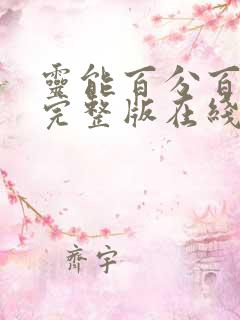 靈能百分百
完整版在綫
齊宇